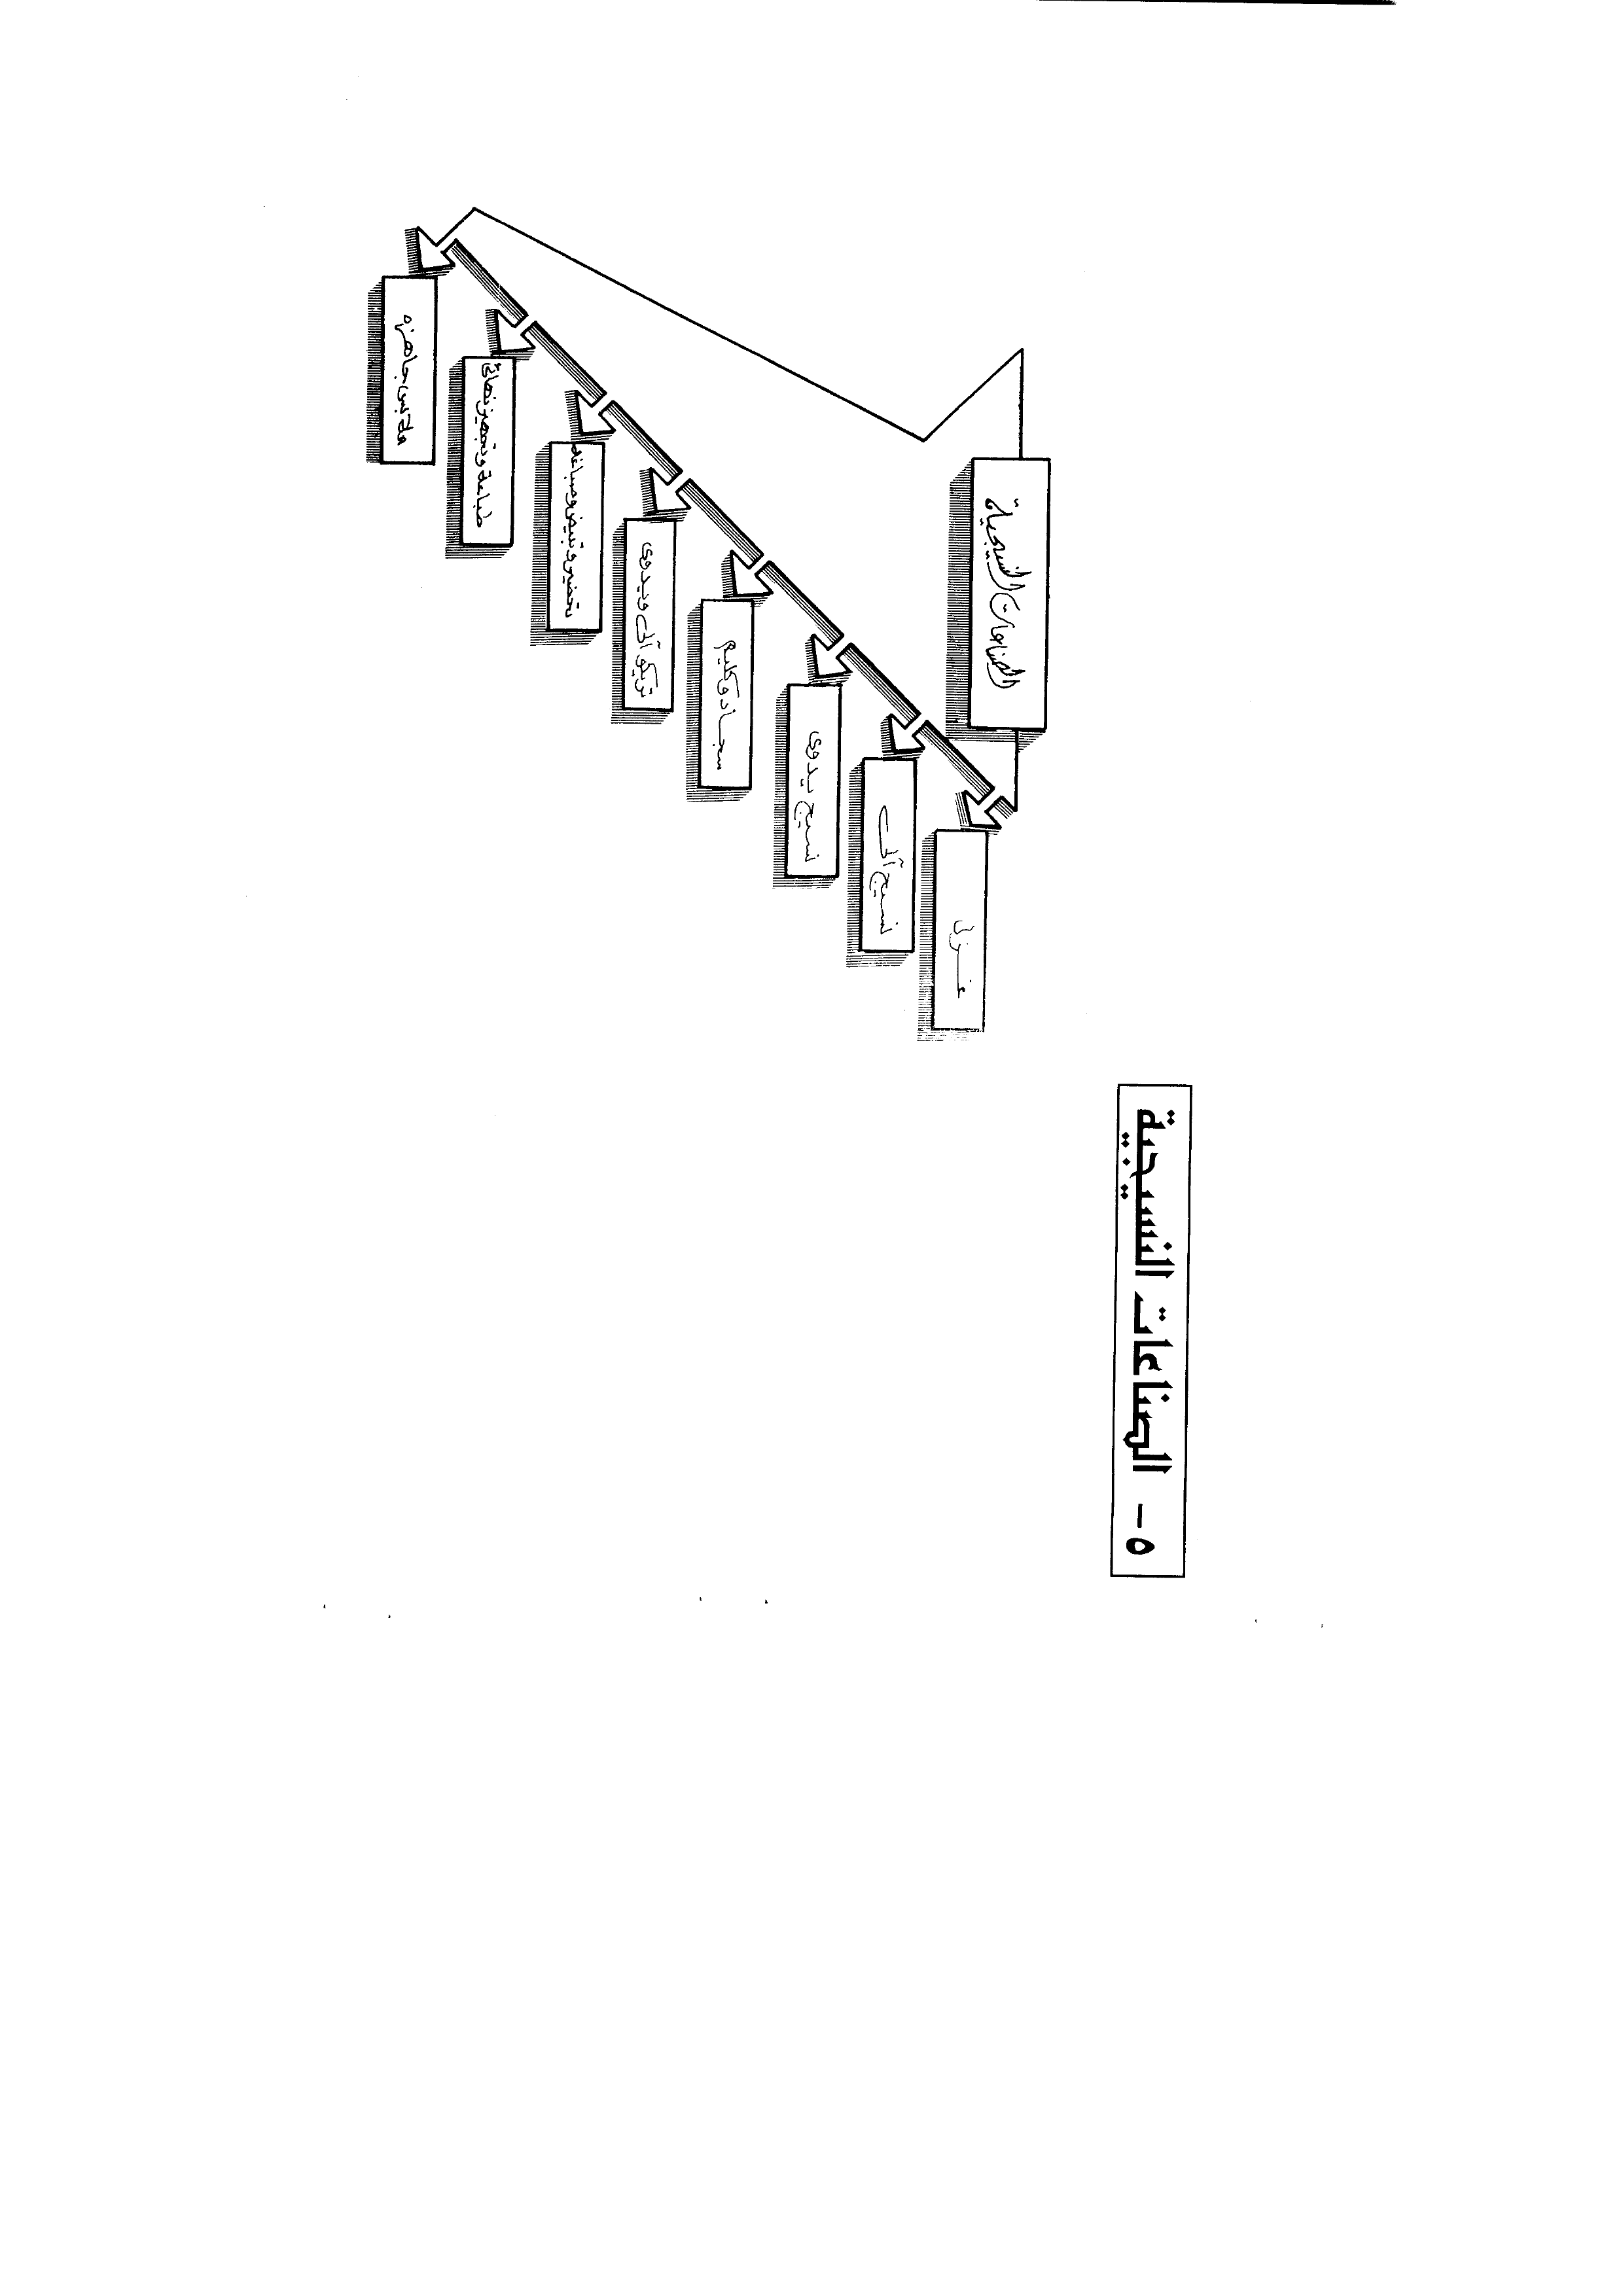 ٥ - الصناعات النسيجية
الصناعات النسيجية
غزل
نسيج آلى
نسيج يدوى
سجاد وكليم
تريكو آلى ويدوى
تحضير وتبيض وصباغه
طباعة وتجهيز نهائى
ملابس جاهزه